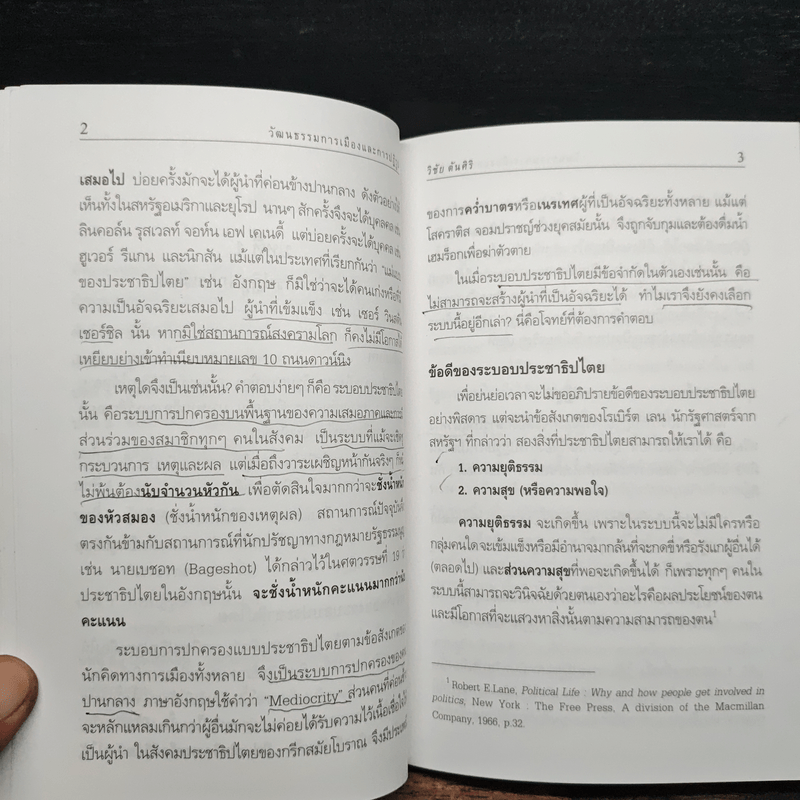 2
วัฒนธรรมการเมืองและการ
เสมอไป บ่อยครั้งมักจะได้ผู้นำที่ค่อนข้างปานกลาง ดังตัวอย่าง
เห็นทั้งในสหรัฐอเมริกาและยุโรป นานๆ สักครั้งจึงจะได้บุคคล เช่น
ลินคอล์น รุสเวลท์ จอห์น เอฟ เคเนดี้ แต่บ่อยครั้งจะได้บุคคล เช่น
ฮูเวอร์ รีแกน และนิกสัน แม้แต่ในประเทศที่เรียกกันว่า
ของประชาธิปไตย” เช่น อังกฤษ ก็มิใช่ว่าจะได้คนเก่งหรือ
ความเป็นอัจฉริยะเสมอไป ผู้นำที่เข้มแข็ง เช่น เซอร์
เชอร์ชิล นั้น หากมิใช่สถานการณ์สงครามโลก ก็คงไม่มีโอกาส
เหยียบย่างเข้าทำเนียบหมายเลข 10 ถนนดาวน์นิง
เหตุใดจึงเป็นเช่นนั้น? คำตอบง่ายๆ ก็คือ ระบอบประชาธิปไตย
นั้น คือระบบการปกครองบนพื้นฐานของความเสมอภาคและ
ส่วนร่วมของสมาชิกทุกๆ คนในสังคม เป็นระบบที่แม้จะ
กระบวนการ เหตุและผล แต่เมื่อถึงวาระเผชิญหน้ากันจริงๆ ก็
ไม่พ้นต้องนับจำนวนหัวกัน เพื่อตัดสินใจมากกว่าจะชั่งน้ำหนัก
ของหัวสมอง (ชั่งน้ำหนักของเหตุผล) สถานการณ์ปัจจุบัน
ตรงกันข้ามกับสถานการณ์ที่นักปรัชญาทางกฎหมายรัฐธรรมนูญ
เช่น นายเบชอท (Bageshot) ได้กล่าวไว้ในศตวรรษที่ 19
ประชาธิปไตยในอังกฤษนั้น จะชั่งน้ำหนักคะแนนมากกว่า
คะแนน
ระบอบการปกครองแบบประชาธิปไตยตามข้อสังเกต
นักคิดทางการเมืองทั้งหลาย จึงเป็นระบบการปกครองของ
ปานกลาง ภาษาอังกฤษใช้คำว่า “Mediocrity” ส่วนคนที่ค่อน
จะหลักแหลมเกินกว่าผู้อื่นมักจะไม่ค่อยได้รับความไว้เนื้อเชื่อใจ
เป็นผู้นำ ในสังคมประชาธิปไตยของกรีกสมัยโบราณ จึงมี
วิชัย ตันศิริ
3
ของการคว่ำบาตรหรือเนรเทศผู้ที่เป็นอัจฉริยะทั้งหลาย แม้แต่
โสคราติส จอมปราชญ์ช่วงยุคสมัยนั้น จึงถูกจับกุมและต้องดื่มน้ำ
เฮมร็อกเพื่อฆ่าตัวตาย
ในเมื่อระบอบประชาธิปไตยมีข้อจำกัดในตัวเองเช่นนั้น คือ
ไม่สามารถจะสร้างผู้นำที่เป็นอัจฉริยะได้ ทำไมเราจึงยังคงเลือก
ระบบนี้อยู่อีกเล่า? นี่คือโจทย์ที่ต้องการคำตอบ
ข้อดีของระบอบประชาธิปไตย
เพื่อย่นย่อเวลาจะไม่ขออภิปรายข้อดีของระบอบประชาธิปไตย
อย่างพิสดาร แต่จะนำข้อสังเกตของโรเบิร์ต เลน นักรัฐศาสตร์จาก
สหรัฐฯ ที่กล่าวว่า สองสิ่งที่ประชาธิปไตยสามารถให้เราได้ คือ
1. ความยุติธรรม
2. ความสุข (หรือความพอใจ)
ความยุติธรรม จะเกิดขึ้น เพราะในระบบนี้จะไม่มีใครหรือ
กลุ่มคนใดจะเข้มแข็งหรือมีอำนาจมากล้นที่จะกดขี่หรือรังแกผู้อื่นได้
(ตลอดไป) และส่วนความสุขที่พอจะเกิดขึ้นได้ ก็เพราะทุกๆ คนใน
ระบบนี้สามารถจะวินิจฉัยด้วยตนเองว่าอะไรคือผลประโยชน์ของตน
และมีโอกาสที่จะแสวงหาสิ่งนั้นตามความสามารถของตน¹
¹ Robert E.Lane, Political Life : Why and how people get involved in
politics, New York : The Free Press, A division of the Macmillan
Company, 1966, p.32.